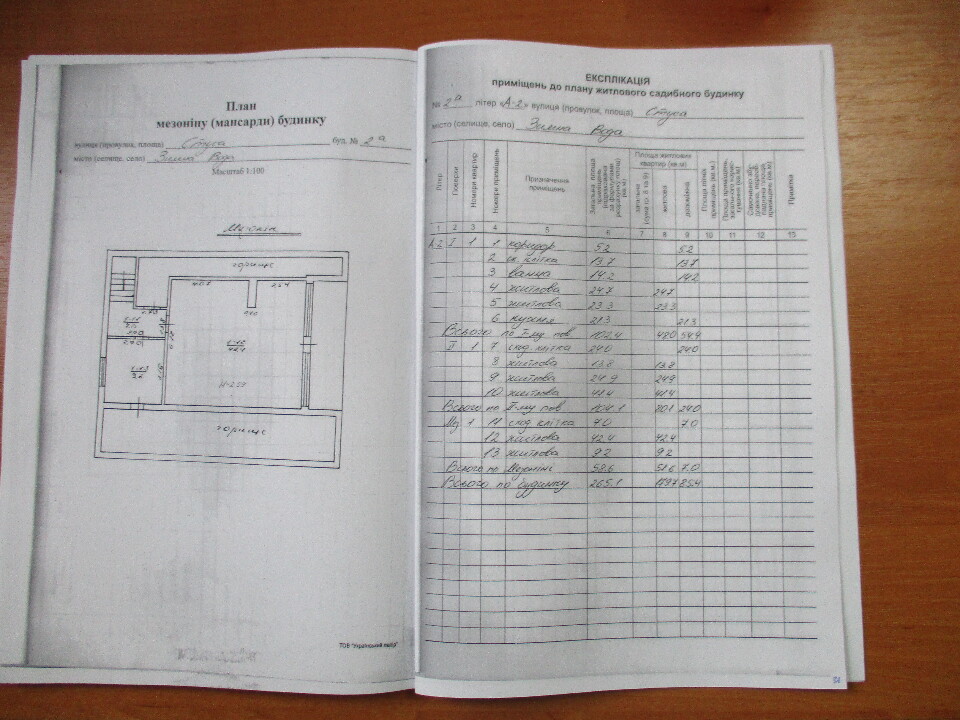 План
мезоніну (мансарди) будинку
вулиця (провулок, площа) Стуса буд. № 2а
місто (селище, село) Зимна Вода
Масштаб 1:100
Мезонін
горище
4.07 2.64
H-2.59
горище
ТОВ "Український
ЕКСПЛІКАЦІЯ
приміщень до плану житлового садибного будинку
№ 2а літер «А-2» вулиця (провулок, площа) Стуса
місто (селище, село) Зимна Вода
Літер Поверхи Номери квартир Номери приміщень Призначення приміщень Загальна площа приміщень Площа житлових квартир (кв.м) загальна житлова Примітка
1 2 3 4 5 6 7 8 9 10 11 12 13
А-2 I 1 1 коридор 5.2 5.2
2 сх. клітка 13.7 13.7
3 ванна 14.2 14.2
4 житлова 24.7 24.7
5 житлова 23.3 23.3
6 кухня 21.3 21.3
Всього по I-му пов 102.4 48.0 54.4
II 1 7 схід. клітка 24.0 24.0
8 житлова 13.8 13.8
9 житлова 24.9 24.9
10 житлова 41.4 41.4
Всього по II-му пов 104.1 80.1 24.0
Мз 1 11 схід клітка 7.0 7.0
12 житлова 42.4 42.4
13 житлова 9.2 9.2
Всього по Мезоніні 58.6 51.6 7.0
Всього по будинку 265.1 179.7 85.4